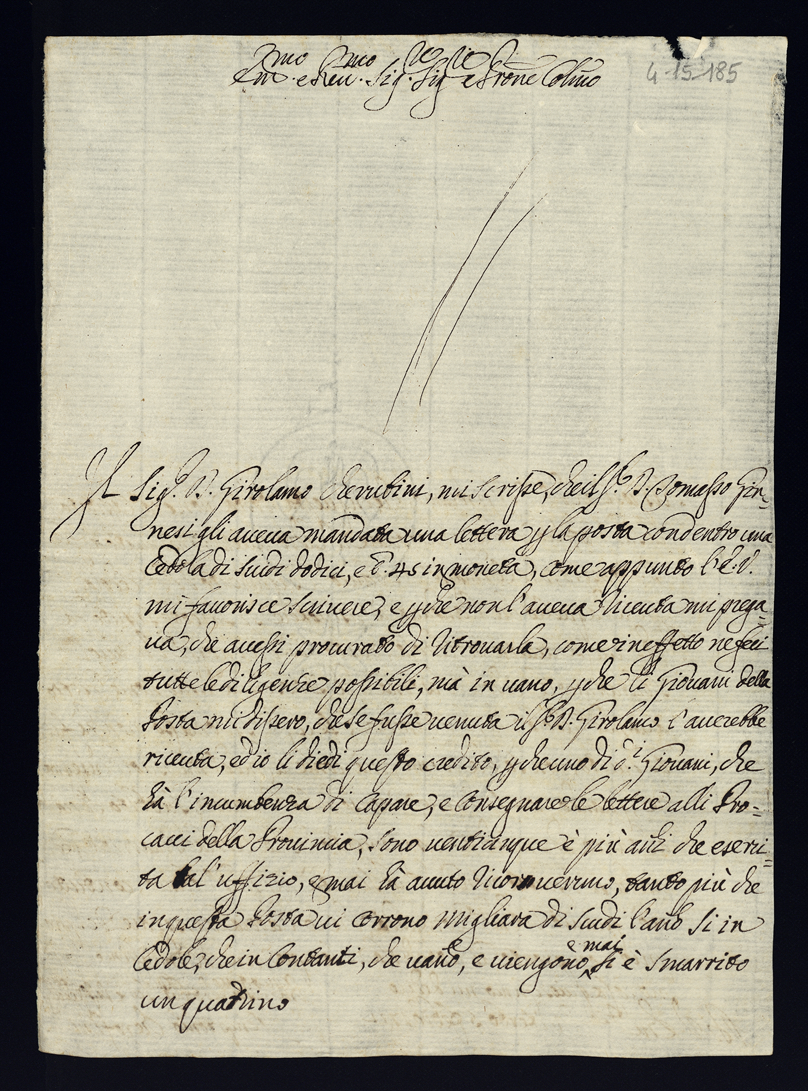 Em.mo e Rev.mo Sig.re Sig.re e Prone Colmo
4-15-185
Il Sig.r D. Girolamo Cherubini, mi scrisse, che il S.r D. Tomasso Gin=
nesi gli aueua mandata una lettera p la posta con dentro una
Cedola di scudi dodici, e b. 45 in moneta, come appunto l'E. V.
mi fauorisce scriuere, e p che non l'aueua riceuta mi prega=
ua, che auessi procurato di ritrouarla, come in effetto ne feci
tutte le diligenze possibili, mà in uano, p che li Giouani della
Posta mi dissero, che se fusse uenuta il S.r D. Girolamo l'auerebbe
riceuta, ed io li diedi questo credito, p che uno di d.i Giouani, che
hà l'incumbenza di capare, e consegnare le lettere alli Pro=
cacci della Prouincia, sono uenticinque è più anni che eserci=
ta tal'uffizio, e mai hà auuto ricorso ueruno, tanto più che
in questa Posta ui corrono migliara di scudi l'anno si in
Cedole, che in Contanti, che uanno, e uengono, e mai si è smarrito
un quatrino